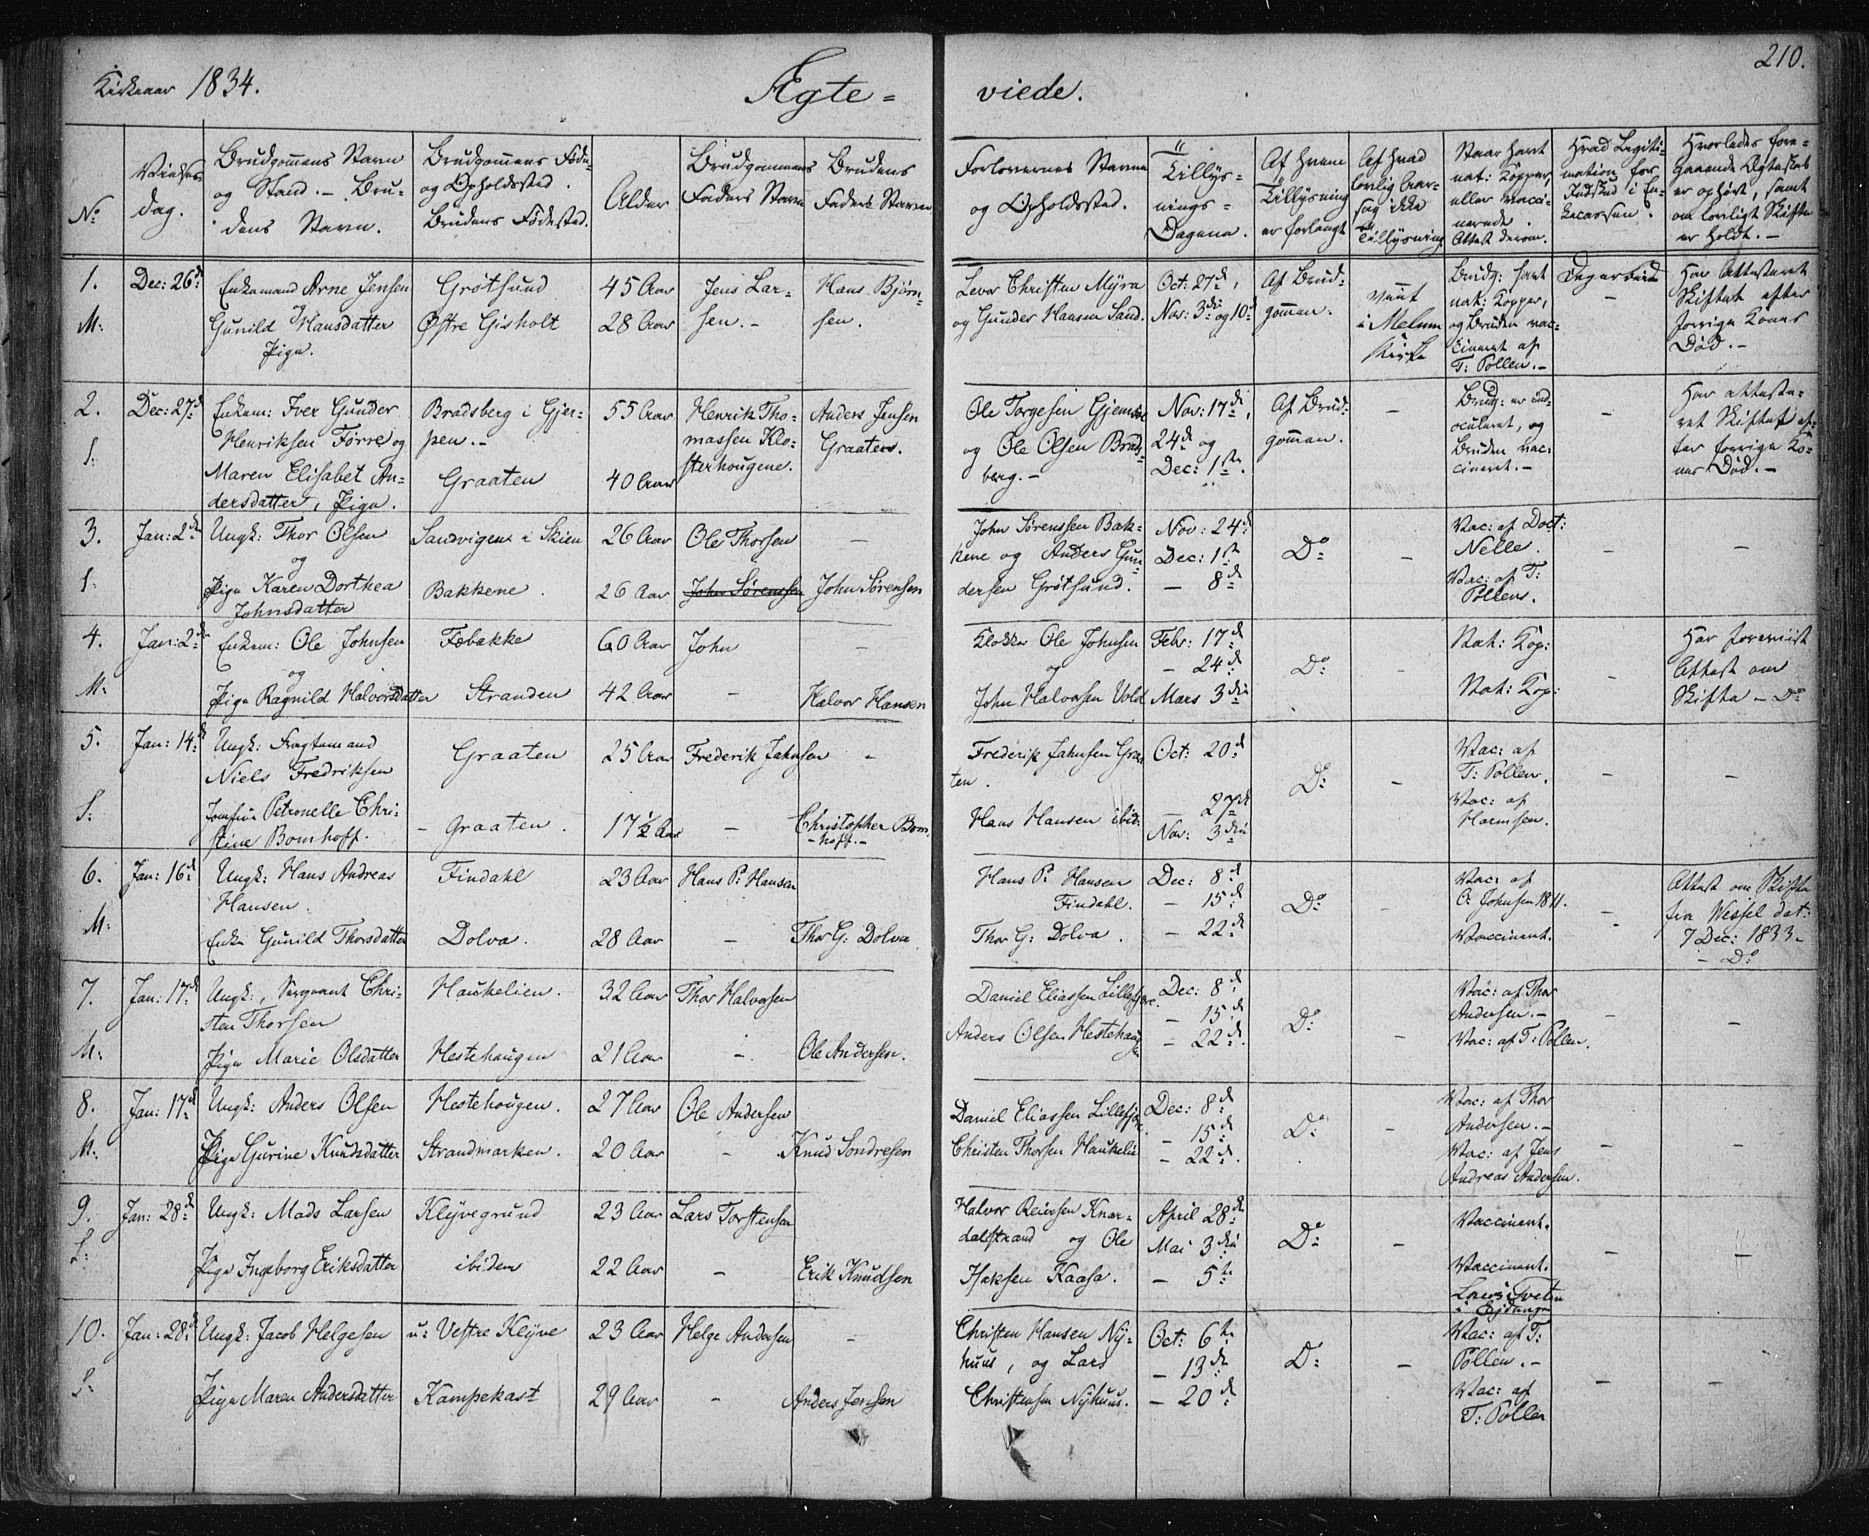 210.
Kirkeaar 1834.
Ægte=
viede.
No
Vielses-
dag.
Brudgommens Navn
og Stand. — Bru-
dens Navn.
Brudgommens Føde-
og Opholdssted.
Brudens Fødested.
Alder
Brudgommens
Faders Navn
Brudens
Faders Navn
Forlovernes Navne
og Opholdssted.
Tillys-
nings-
Dagene.
Af hvem
Tillysning
er forlangt
Af hvad
lovlig Aar-
sag ikke
Tillysning
Naar havt
nat: Kopper,
eller vacci-
nerede.
Attest derom.
Hvad Legiti-
mation for
Hvorledes fore-
gaaende Ægteskab
er ophørt, samt
om lovligt Skifte
er holdt. —
1.
M.
Dec: 26d
Enkemand Arne Jensen
og
Gunild Hansdatter
Pige.
Grøtsund
Østre Gisholt
45 Aar
28 Aar
Jens Lar-
sen. —
Hans Bjørn-
sen.
Levor Christen Myra
og Gunder Hansen Sand.
Oct: 27d,
Nov: 3die og 10d
Af Brud-
gommen.
viet
i Melum
Kirke
Brudg: havt
nat: Kopper,
og Bruden vac-
cineret af
T: Pollen. —
—
Har Attesteret
Skiftet efter
forrige Kones
Død. —
2.
S.
Dec: 27d
Enkem: Iver Gunder
Henriksen Førre og
Maren Elisabet An-
dersdatter, Pige.
Bradsberg i Gjer-
pen. —
Graaten
55 Aar
40 Aar
Henrik Tho-
massen Klo-
sterhougene.
Anders Jensen
Graaten.
Ole Torgesen
og Ole Olsen Brads-
berg. —
Nov: 17d,
24d og
Dec: 1ste.
Af Brud-
gommen.
—
Brudg: er ind-
oculeret, og
Bruden vac-
cineret. —
—
Har atteste-
ret Skiftet ef-
ter forrige Ko-
nes Død. —
3.
S.
Jan: 2d
Ungk: Thor Olsen
og
Pige Karen Dorthea
Johnsdatter
Sandvigen i Skien
Bakkene.
26 Aar
26 Aar
Ole Thorsen
John Sørensen
—
John Sørensen
John Sørenssen Bak-
kene og Anders Gun-
dersen Grøtsund.
Nov: 24d
Dec: 1ste
— 8d
Do
—
Vac: af Doct:
Nelle.
Vac: af T:
Pollens.
—
—
4.
M.
Jan: 2d
Enkem: Ole Johnsen
og
Pige Ragnild Halvorsdatter
Fæbakke
Stranden
60 Aar
42 Aar
John
—
—
Halvor Hansen
Klokker Ole Johnsen
og
John Halvorsen Vold
Febr: 17d
— 24d
Mars 3die
Do
—
Nat: Kop:
Nat: Kop:
—
Har foreviist
Attest om
Skifte — Do
5.
S.
Jan: 14d
Ungk: Fragtemand
Niels Fredriksen
Jomfru Petronelle Chri-
stine Bomhoff.
Graaten
— Graaten.
25 Aar
17½ Aar
Frederik Jahnsen
—
—
Christopher Bom-
hoff. —
Frederik Jahnsen Graa-
ten.
Hans Hansen ibid:
Oct: 20d
— 27d
Nov: 3die
Do
—
Vac: af
T: Pollen.
Vac: af
Harmsen.
—
—
6.
M.
Jan: 16d
Ungk: Hans Andreas
Hansen.
Enke Gunild Thorsdatter
Findahl
Dolva.
23 Aar
28 Aar
Hans P: Hansen
—
Thor G: Dolva
Hans P: Hansen
Findahl.
Thor G: Dolva.
Dec: 8d
— 15d
— 22d
Do
—
Vac: af
O: Johnsen 1811.
Vaccineret.
—
Attest om Skifte
fra Wessel dat:
7 Dec: 1833 —
— Do
7.
M.
Jan: 17d
Ungk:, Sergeant Chri-
sten Thorsen
Pige Marie Olsdatter
Haukelien.
Hestehaugen
32 Aar
21 Aar
Thor Halvorsen
—
Ole Andersen.
Daniel Eliassen Lillefjære.
Anders Olsen Hestehaugen
Dec: 8d
— 15d
— 22d
Do
—
Vac: af Thor
Andersen. —
Vac: af T: Pollen.
—
—
8.
M.
Jan: 17d
Ungk: Anders Olsen
Pige Gurine Knudsdatter
Hestehougen.
Strandmarken.
27 Aar
20 Aar
Ole Andersen
—
Knud Sondresen
Daniel Eliassen Lillefjære.
Christen Thorsen Haukelie
Dec: 8d
— 15d
— 22d.
Do
—
Vac: af Thor
Andersen. —
Vac: af Jens
Andreas Andersen.
—
—
9.
S.
Jan: 28d
Ungk: Mads Larsen
Pige Ingeborg Eriksdatter
Klyvegrund
ibidem
23 Aar
22 Aar
Lars Torstensen
—
Erik Knudsen
Halvor Reiersen Knar-
dalstrand og Ole
Isaksen Kaasa.
April 28d
Mai 3die
— 5te
Do
—
Vaccineret.
Vaccineret.
—
10.
S.
Jan: 28d
Ungk: Jacob Helgesen
Pige Maren Andersdatter
u: Vestre Klyve
Kampekast
23 Aar
29 Aar
Helge Andersen
—
—
Anders Jensen
Christen Hansen Ny-
huus, og Lars
Christensen Nyhuus.
Oct: 6te
— 13d
— 20d
Do
—
Vac: af T:
Pollen. —
Vac: af
T: Pollen
—
—